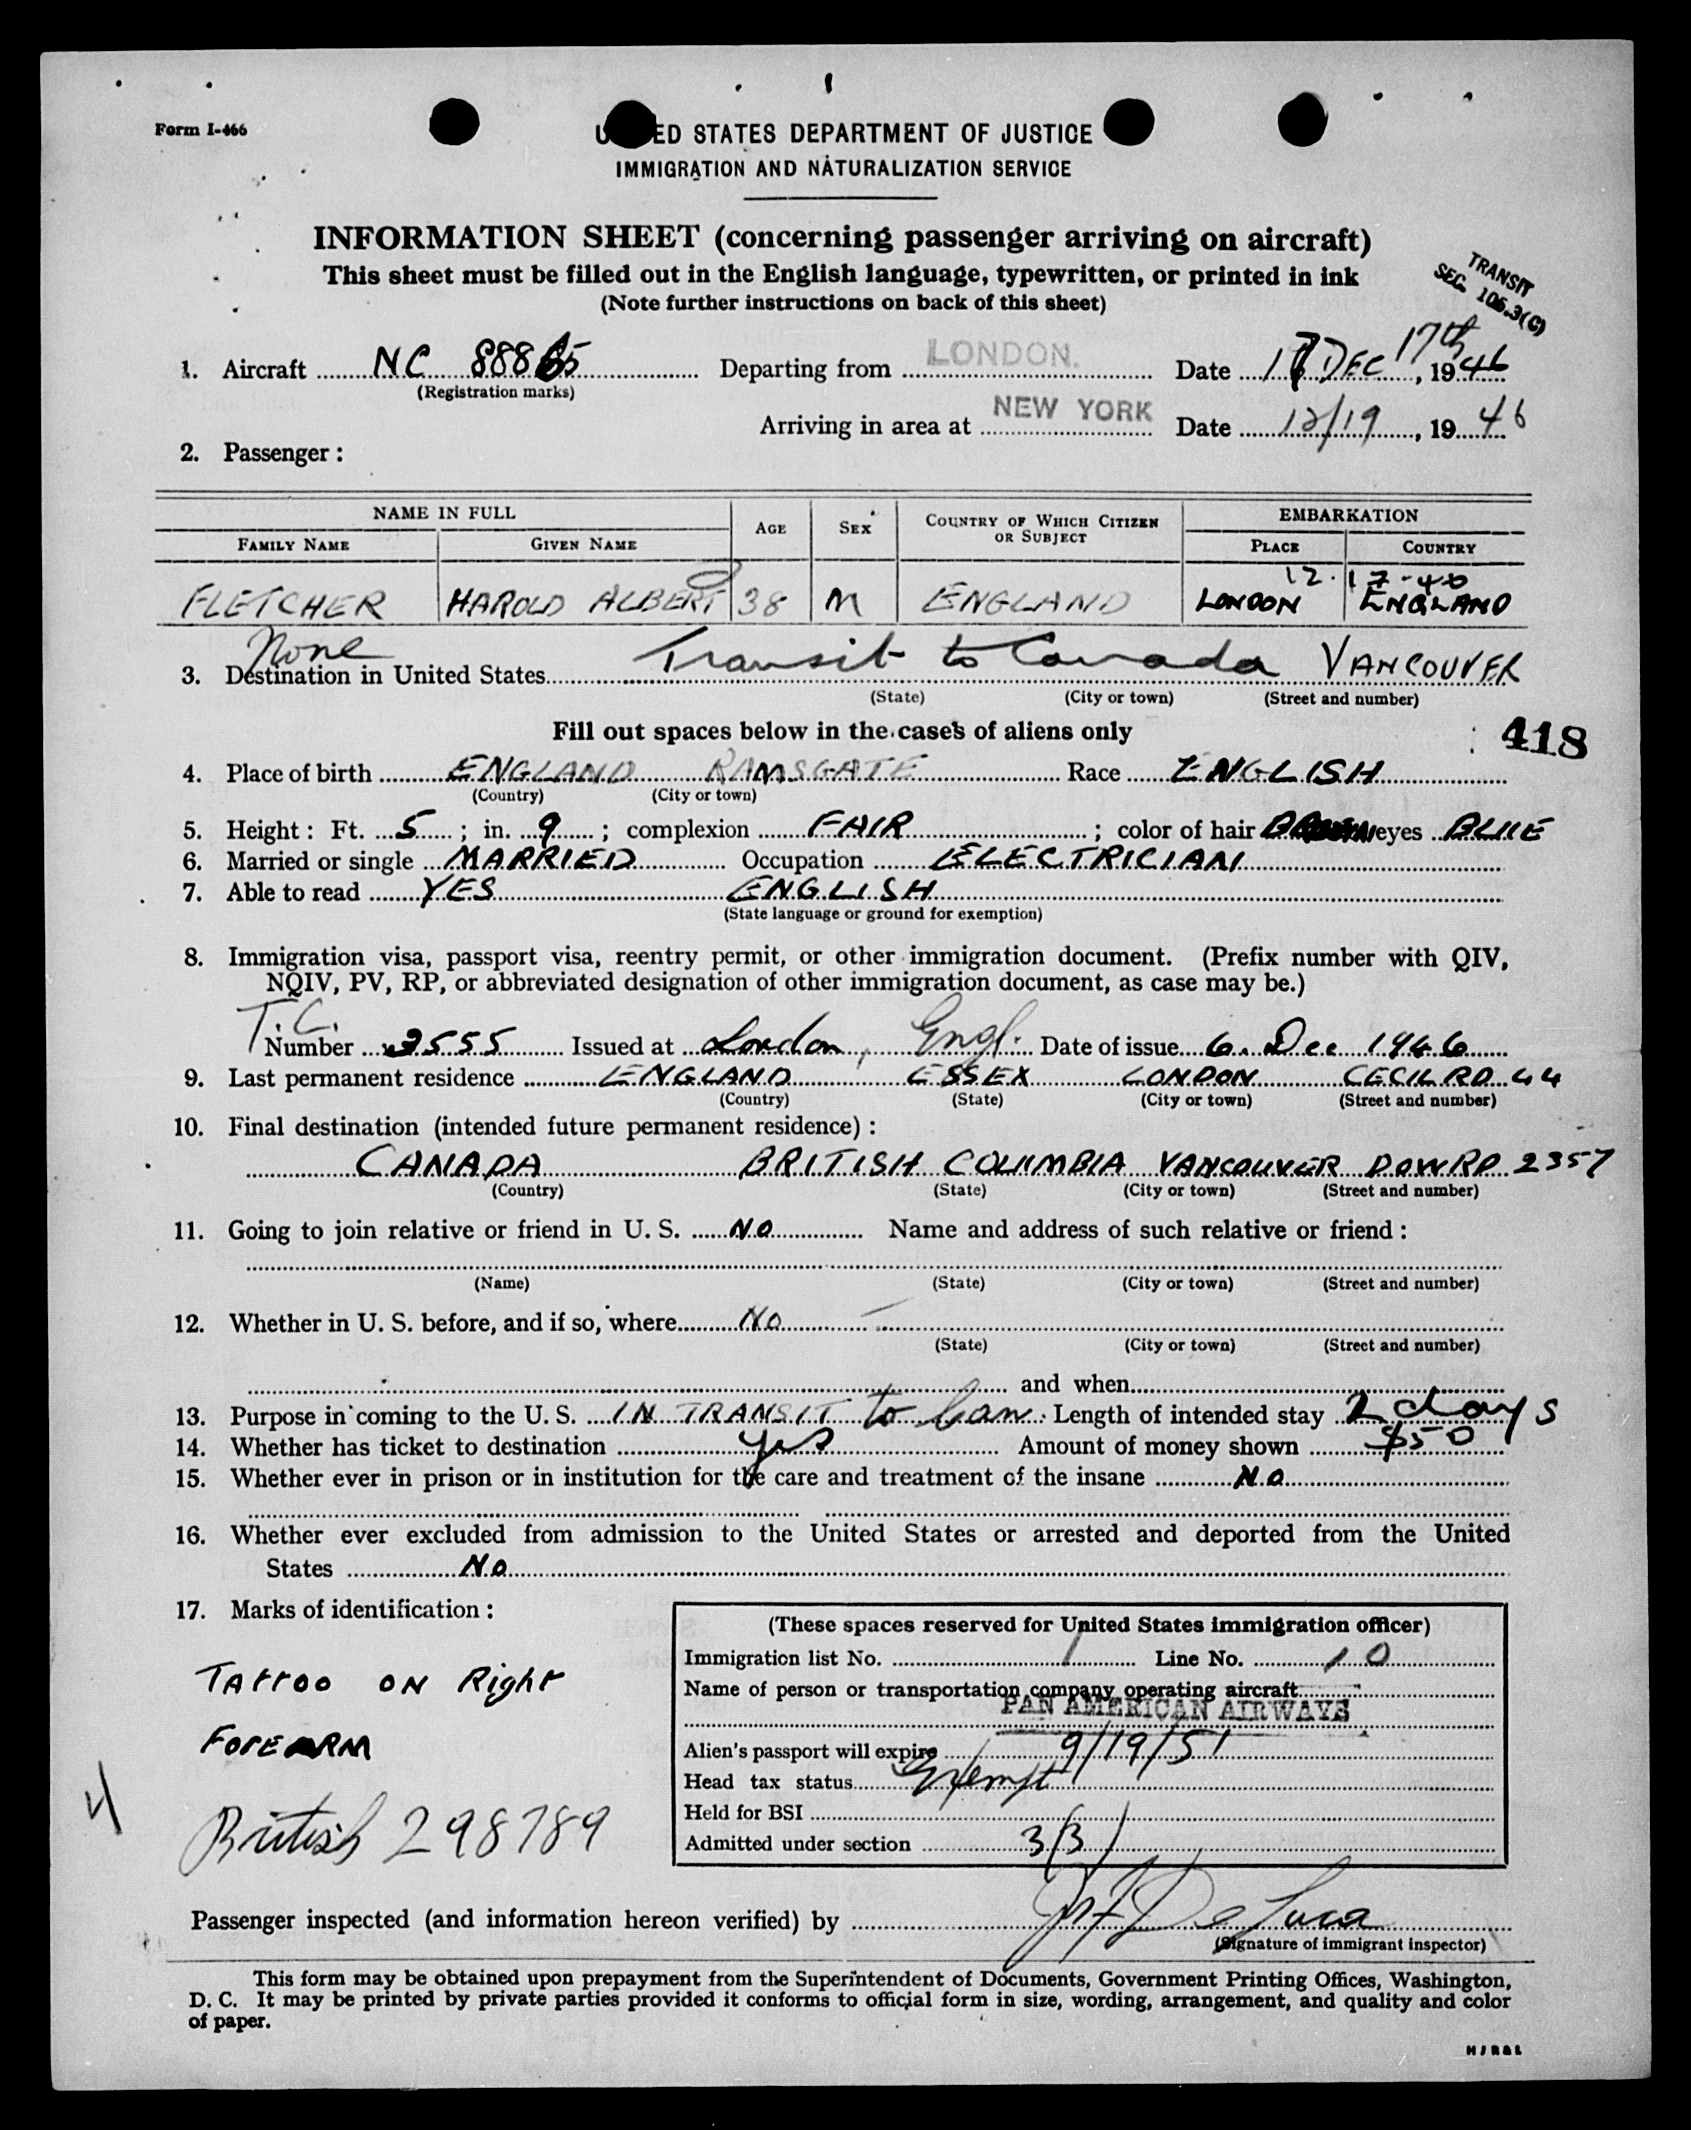 Form I-466
UNITED STATES DEPARTMENT OF JUSTICE
IMMIGRATION AND NATURALIZATION SERVICE
INFORMATION SHEET (concerning passenger arriving on aircraft)
This sheet must be filled out in the English language, typewritten, or printed in ink
(Note further instructions on back of this sheet)
TRANSIT
SEC. 105.3(C)
17th
1. Aircraft NC 88865 Departing from LONDON. Date 17 DEC, 1946
(Registration marks)
Arriving in area at NEW YORK Date 12/19, 1946
2. Passenger:
NAME IN FULL AGE SEX COUNTRY OF WHICH CITIZEN OR SUBJECT EMBARKATION
FAMILY NAME GIVEN NAME PLACE COUNTRY
12-17-46
FLETCHER HAROLD ALBERT 38 M ENGLAND LONDON ENGLAND
None
3. Destination in United States Transit to Canada VANCOUVER
(State) (City or town) (Street and number)
Fill out spaces below in the cases of aliens only
418
4. Place of birth ENGLAND RAMSGATE Race ENGLISH
(Country) (City or town)
5. Height: Ft. 5; in. 9; complexion FAIR; color of hair eyes BLUE
6. Married or single MARRIED Occupation ELECTRICIAN
7. Able to read YES ENGLISH
(State language or ground for exemption)
8. Immigration visa, passport visa, reentry permit, or other immigration document. (Prefix number with QIV,
NQIV, PV, RP, or abbreviated designation of other immigration document, as case may be.)
T.C.
Number 2555 Issued at London, Engl. Date of issue 6. Dec 1946
9. Last permanent residence ENGLAND ESSEX LONDON CECIL RD 44
(Country) (State) (City or town) (Street and number)
10. Final destination (intended future permanent residence):
CANADA BRITISH COLUMBIA VANCOUVER DOW RD 2357
(Country) (State) (City or town) (Street and number)
11. Going to join relative or friend in U. S. NO Name and address of such relative or friend:
(Name) (State) (City or town) (Street and number)
12. Whether in U. S. before, and if so, where NO
(State) (City or town) (Street and number)
and when
13. Purpose in coming to the U. S. IN TRANSIT to Can. Length of intended stay 2 days
14. Whether has ticket to destination yes Amount of money shown $50
15. Whether ever in prison or in institution for the care and treatment of the insane NO
16. Whether ever excluded from admission to the United States or arrested and deported from the United
States NO
17. Marks of identification:
TATTOO ON Right
FOREARM
British 298789
(These spaces reserved for United States immigration officer)
Immigration list No. 1 Line No. 10
Name of person or transportation company operating aircraft
PAN AMERICAN AIRWAYS
Alien's passport will expire 9/19/51
Head tax status Exempt
Held for BSI
Admitted under section 3(3)
Passenger inspected (and information hereon verified) by De Luca
(Signature of immigrant inspector)
This form may be obtained upon prepayment from the Superintendent of Documents, Government Printing Offices, Washington,
D. C. It may be printed by private parties provided it conforms to official form in size, wording, arrangement, and quality and color
of paper.